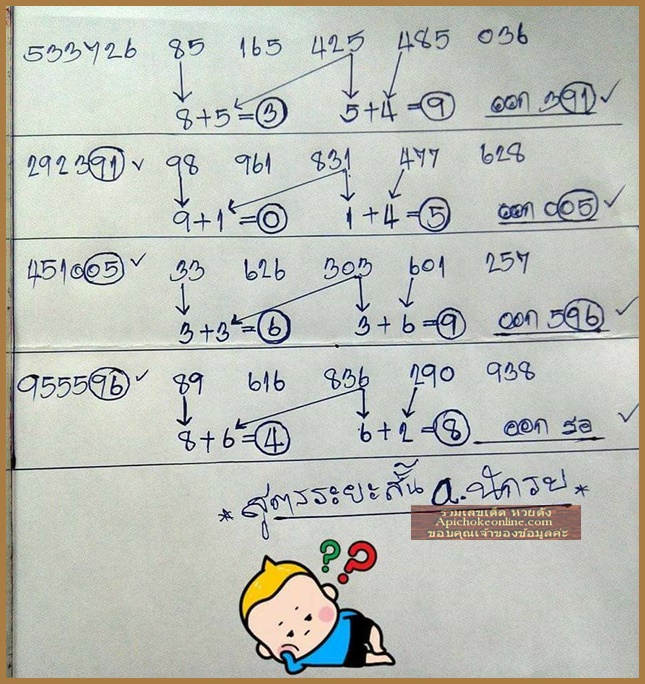 533726 85 165 425 485 036
8+5=3 5+4=9 ออก 391 ✓
292391 ✓ 98 961 831 477 628
9+1=0 1+4=5 ออก 005 ✓
451005 ✓ 33 626 303 601 257
3+3=6 3+6=9 ออก 596 ✓
955596 ✓ 89 616 836 290 938
8+6=4 6+2=8 ออก รอ ✓
* สูตรระยะสั้น อ.นักรบ *
รวมเลขเด็ด หวยดัง
Apichokeonline.com
ขอบคุณเจ้าของข้อมูลค่ะ
? ? ?